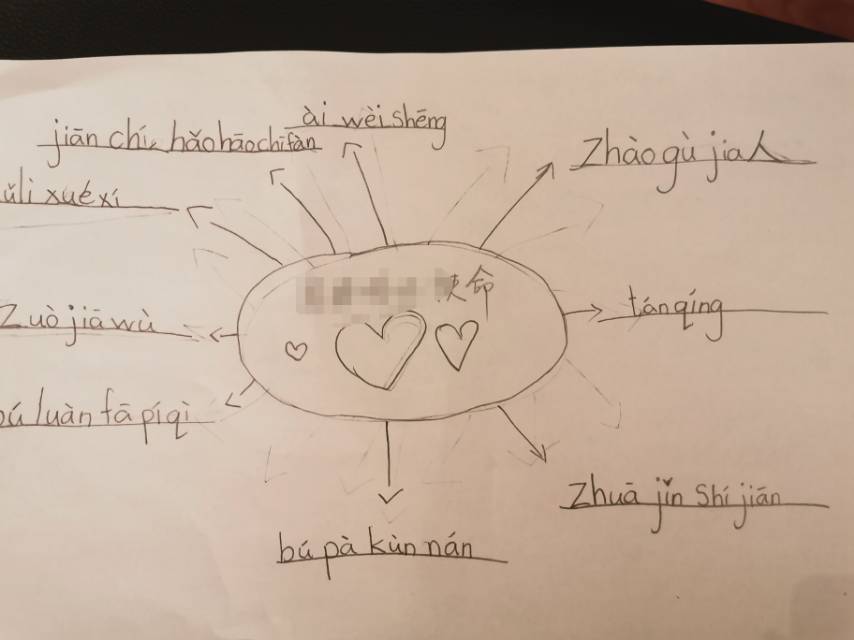 ài wèi shēng
jiān chí
hǎo hāo chī fàn
zhào gù jia人
ǔli xué xí
使命
tán qíng
zuò jiā wù
bú luàn fā pí qì
zhuā jǐn shí jiān
bú pà kùn nán